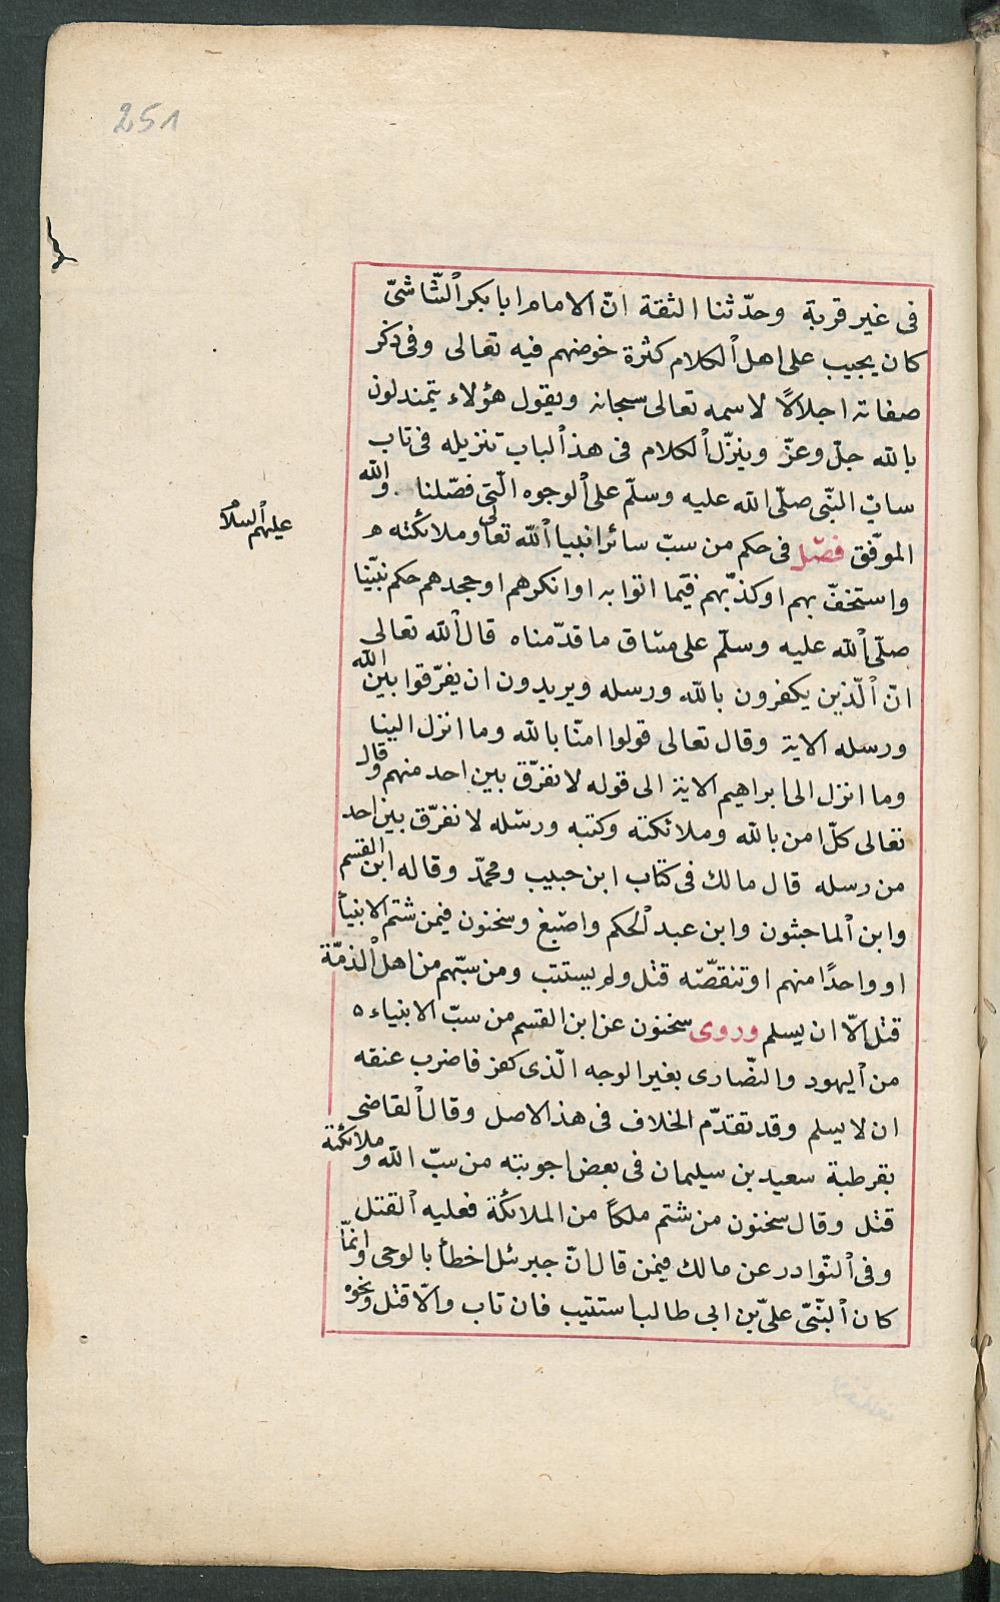 251
فى غير قربة وحدّثنا الثقة انّ الامام ابا بكر الشّاشىّ
كان يجيب على اهل الكلام كثرة خوضهم فيه تعالى وفى ذكر
صفاته اجلالًا لاسمه تعالى سبحانه ويقول هؤلاء يتمندلون
بالله جلّ وعزّ وينزّل الكلام فى هذ الباب تنزيله فى تاب
سابّ النّبى صلّى الله عليه وسلّم على الوجوه الّتى فصّلنا . والله
الموفّق فصل فى حكم من سبّ سائر انبيا الله تعالى وملائكته ه
عليهم السلام
واستخفّ بهم او كذّبهم فيما اتوا به او انكرهم او جحدهم حكم نبيّنا
صلّى الله عليه وسلّم على مساق ما قدّمناه قال الله تعالى
انّ الّذين يكفرون بالله ورسله ويريدون ان يفرّقوا بين الله
ورسله الاية وقال تعالى قولوا امنّا بالله وما انزل الينا
وما انزل الى ابراهيم الاية الى قوله لا نفرّق بين احد منهم وقال
تعالى كلّ امن بالله وملائكته وكتبه ورسله لا نفرّق بين احد
من رسله قال مالك فى كتاب ابن حبيب ومحمّد وقاله ابن القسم
وابن الماجشون وابن عبد الحكم واصبغ وسحنون فيمن شتم الانبيأ
او واحدًا منهم او تنقصّه قتل ولم يستتب ومن سبّهم من اهل الذمّة
قتل الّا ان يسلم وروى سحنون عن ابن القسم من سبّ الانبياء ه
من اليهود والنّصارى بغير الوجه الّذى كفر فاضرب عنقه
ان لا يسلم وقد تقدّم الخلاف فى هذ الاصل وقال القاضى
بقرطبة سعيد بن سيلمان فى بعض اجوبته من سبّ الله وملائكة
قتل وقال سحنون من شتم ملكاً من الملائكة فعليه القتل
وفى النّوادر عن مالك فيمن قال انّ جبرئل اخطأ بالوحى وانمّا
كان النّبّى علىّ بن ابى طالب استتيب فان تاب والّا قتل ونحوه